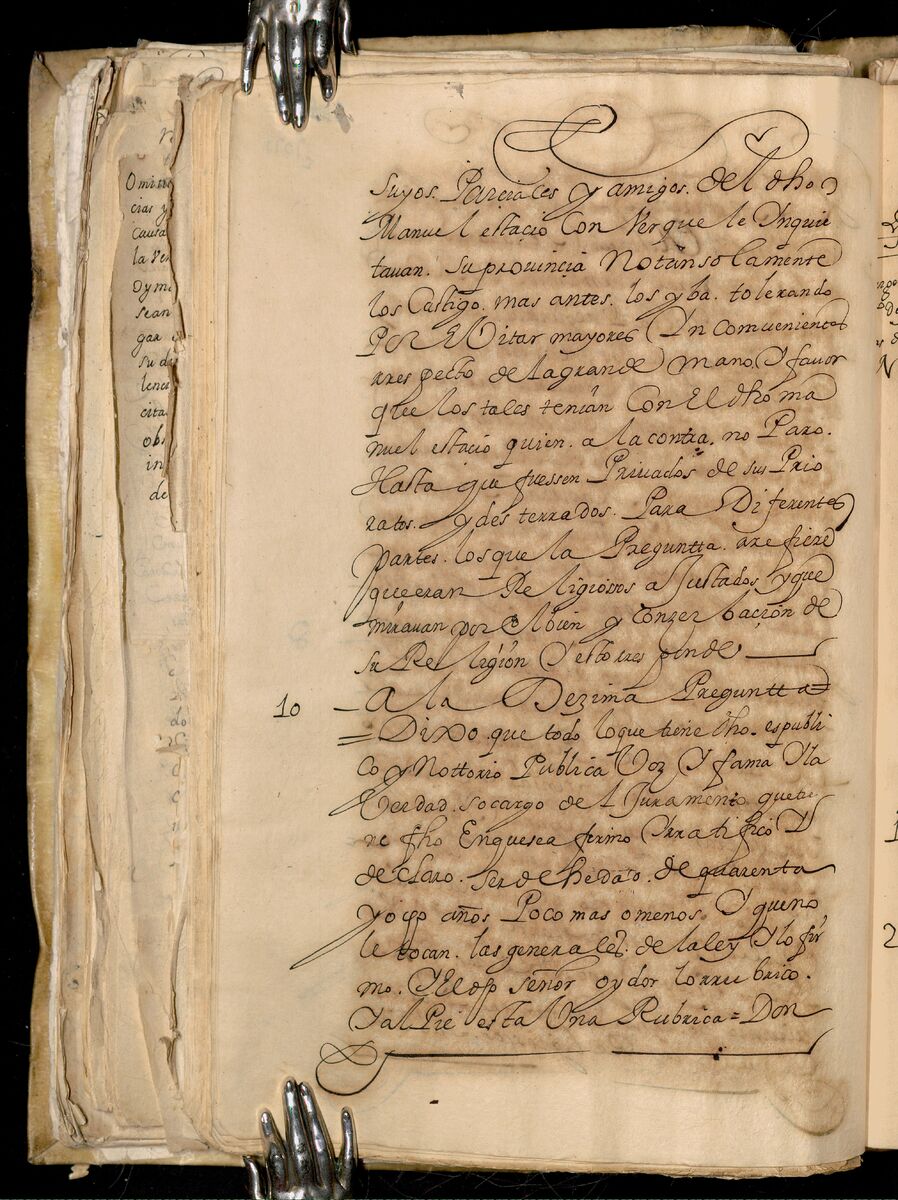 Suyos. Parciales y amigos. del dho
Manuel estacio Con Ver que le Inquie
tavan. Su provincia No tan solamente
los Castigo. mas antes. los yba. tolerando
Por El Vitar mayores In comvenientes
rres pecto de la grande mano, Y favor
que los tales tenian Con El dho ma
nuel estacio quien. a la contra. no Paro.
Hasta que fuessen Privados de sus Prio
ratos. y des terrados. Para Diferentes
partes. los que la Preguntta. rre fiere
que eran Re ligiosos a Justados y que
miravan por el bien y Conzer bación de
su Re ligión Y esto rres ponde
10
A la Dezima Preguntta =
= Dixo que todo lo que tiene dho. es publi
co y Nottorio Publica Voz Y fama Y la
Verdad. so cargo de l Juramento que tie
ne fho En que se a firmo Y rra tificó Y
de claro. Ser de hedad. de quarenta
y o cho años Poco mas o menos. Y que no
le tocan. las generales. de la ley Y lo fir
mo. Y El dho señor oydor lo rru brico.
Y al Pie esta Una Rubrica = Don
Omiti
cias y
Causa
la Ve
sean
gar
su d
lenc
cita
obs
in
de
do
2